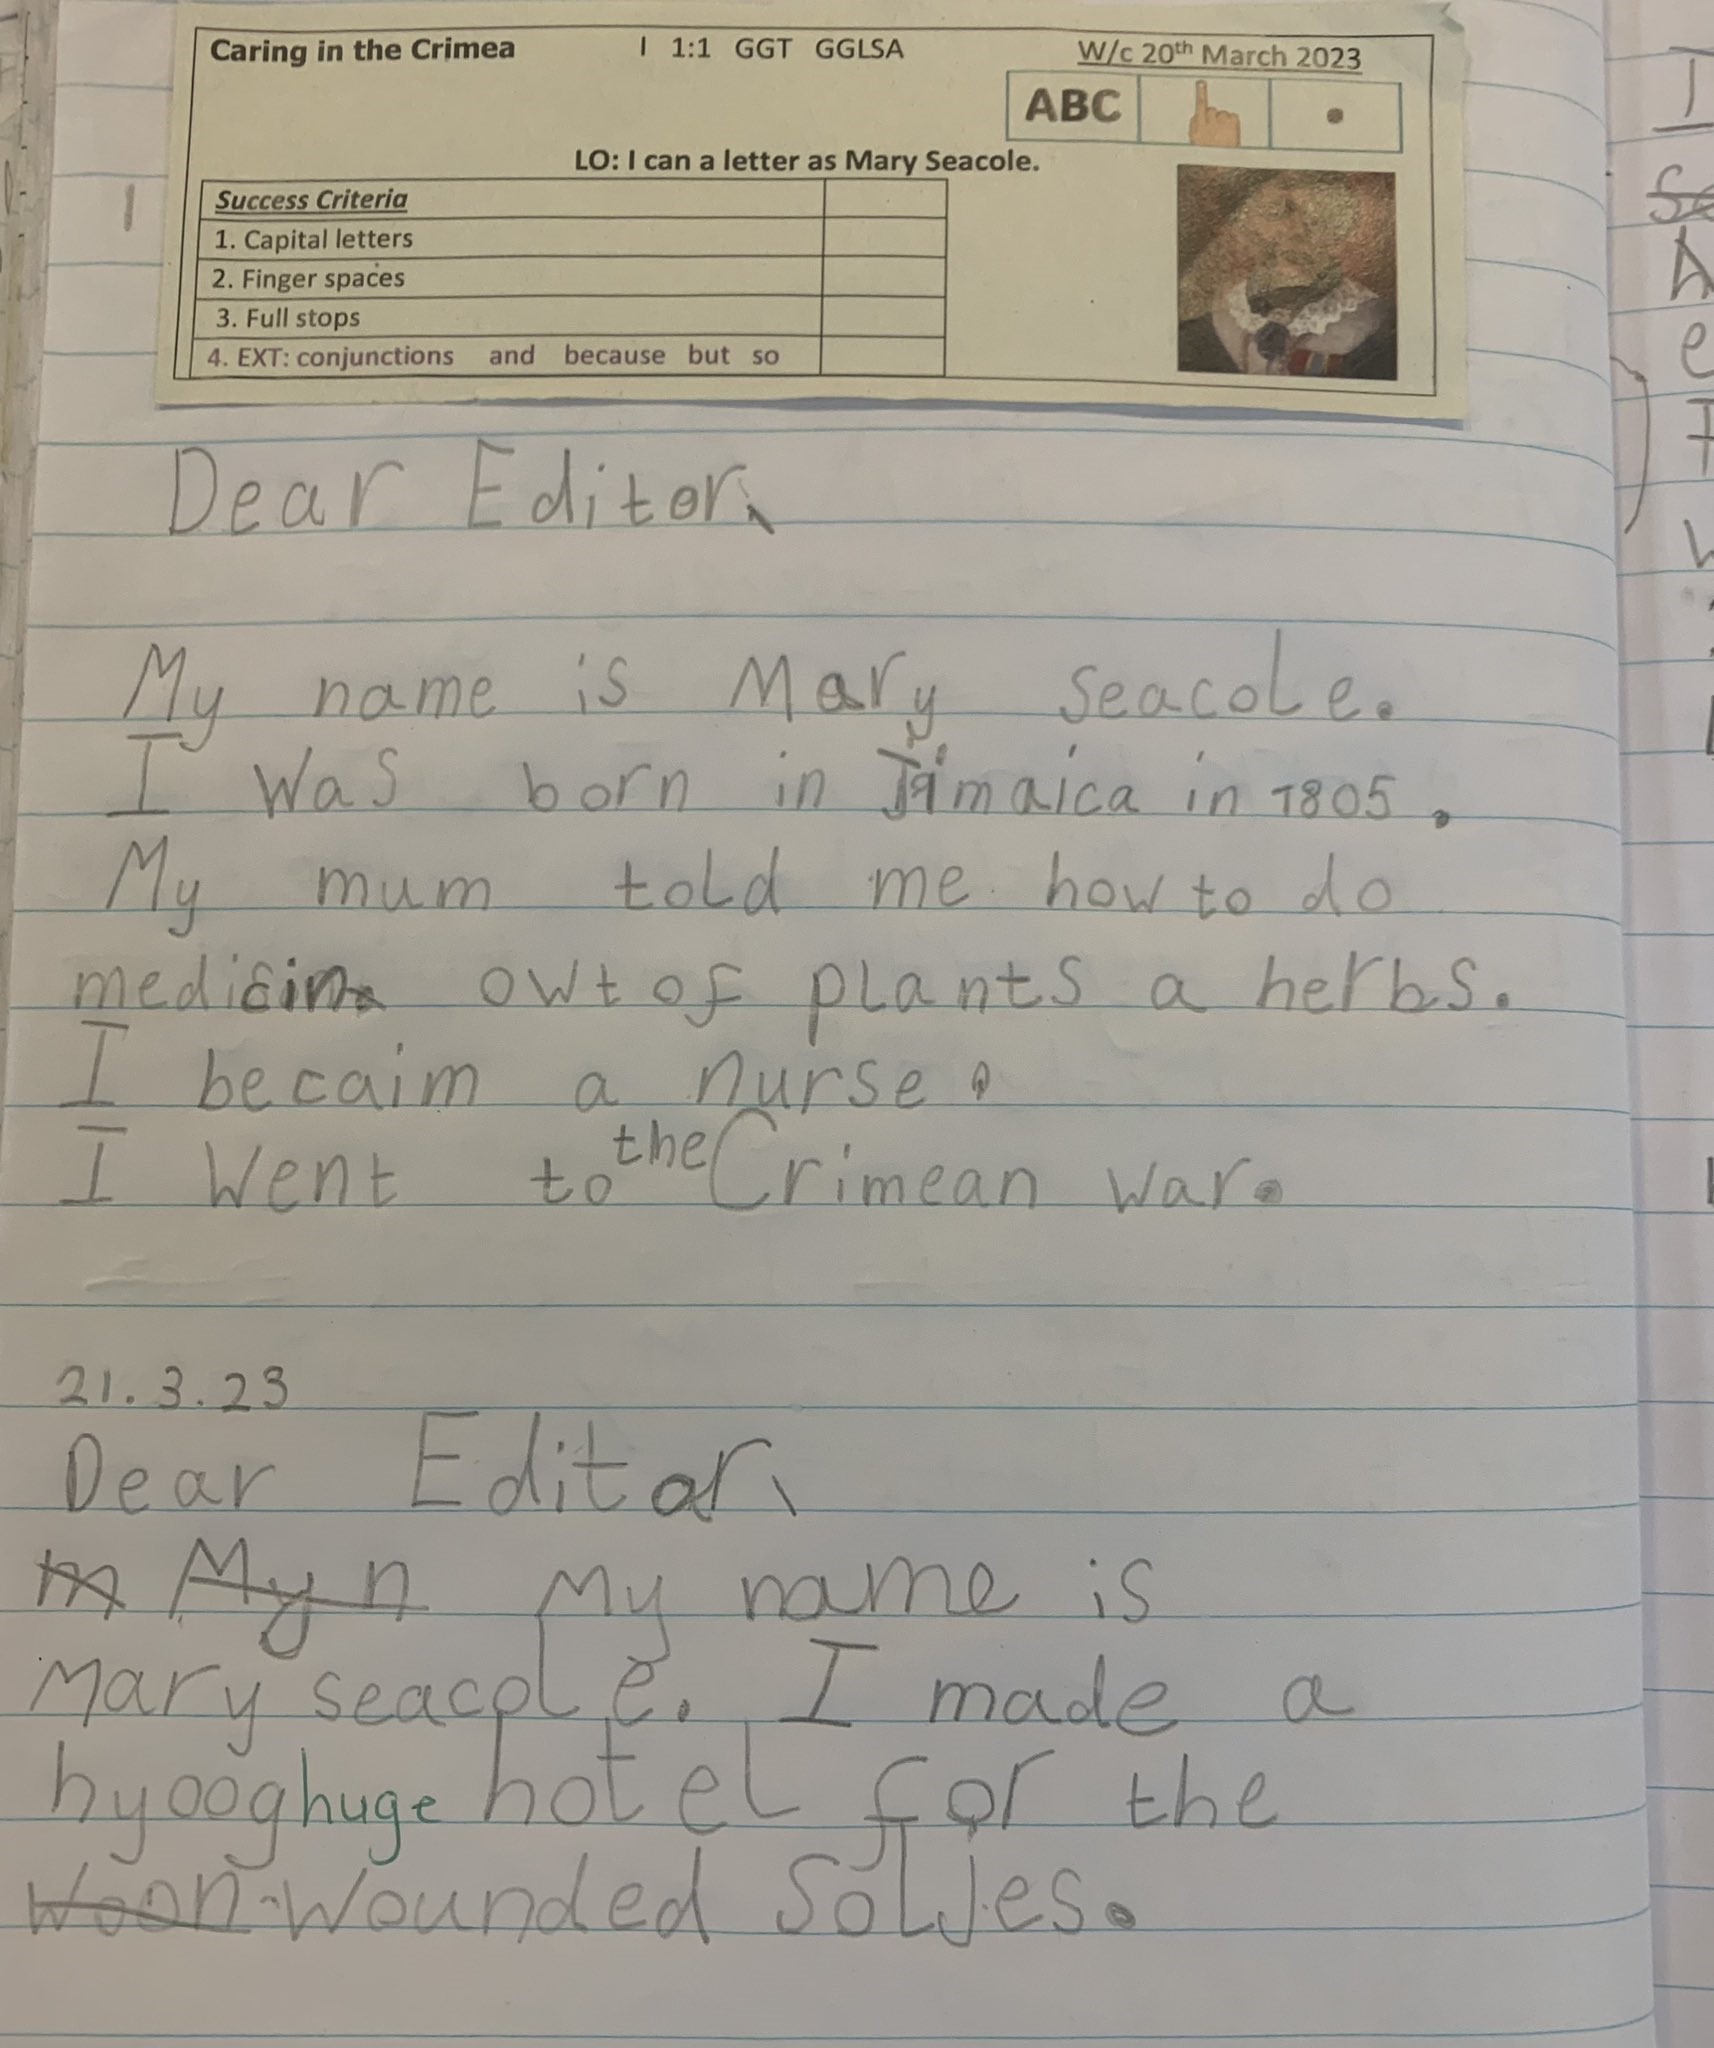 Caring in the Crimea I 1:1 GGT GGLSA W/c 20th March 2023
ABC
LO: I can a letter as Mary Seacole.
Success Criteria
1. Capital letters
2. Finger spaces
3. Full stops
4. EXT: conjunctions and because but so
I
Dear Editor,
My name is Mary seacole.
I was born in Jamaica in 1805.
My mum told me how to do
medicin owt of plants a herbs.
I becaim a nurse.
I went to the Crimean war.
21.3.23
Dear Editor,
m My n My name is
Mary seacole. I made a
hyoog huge hotel for the
woon wounded Soljes.